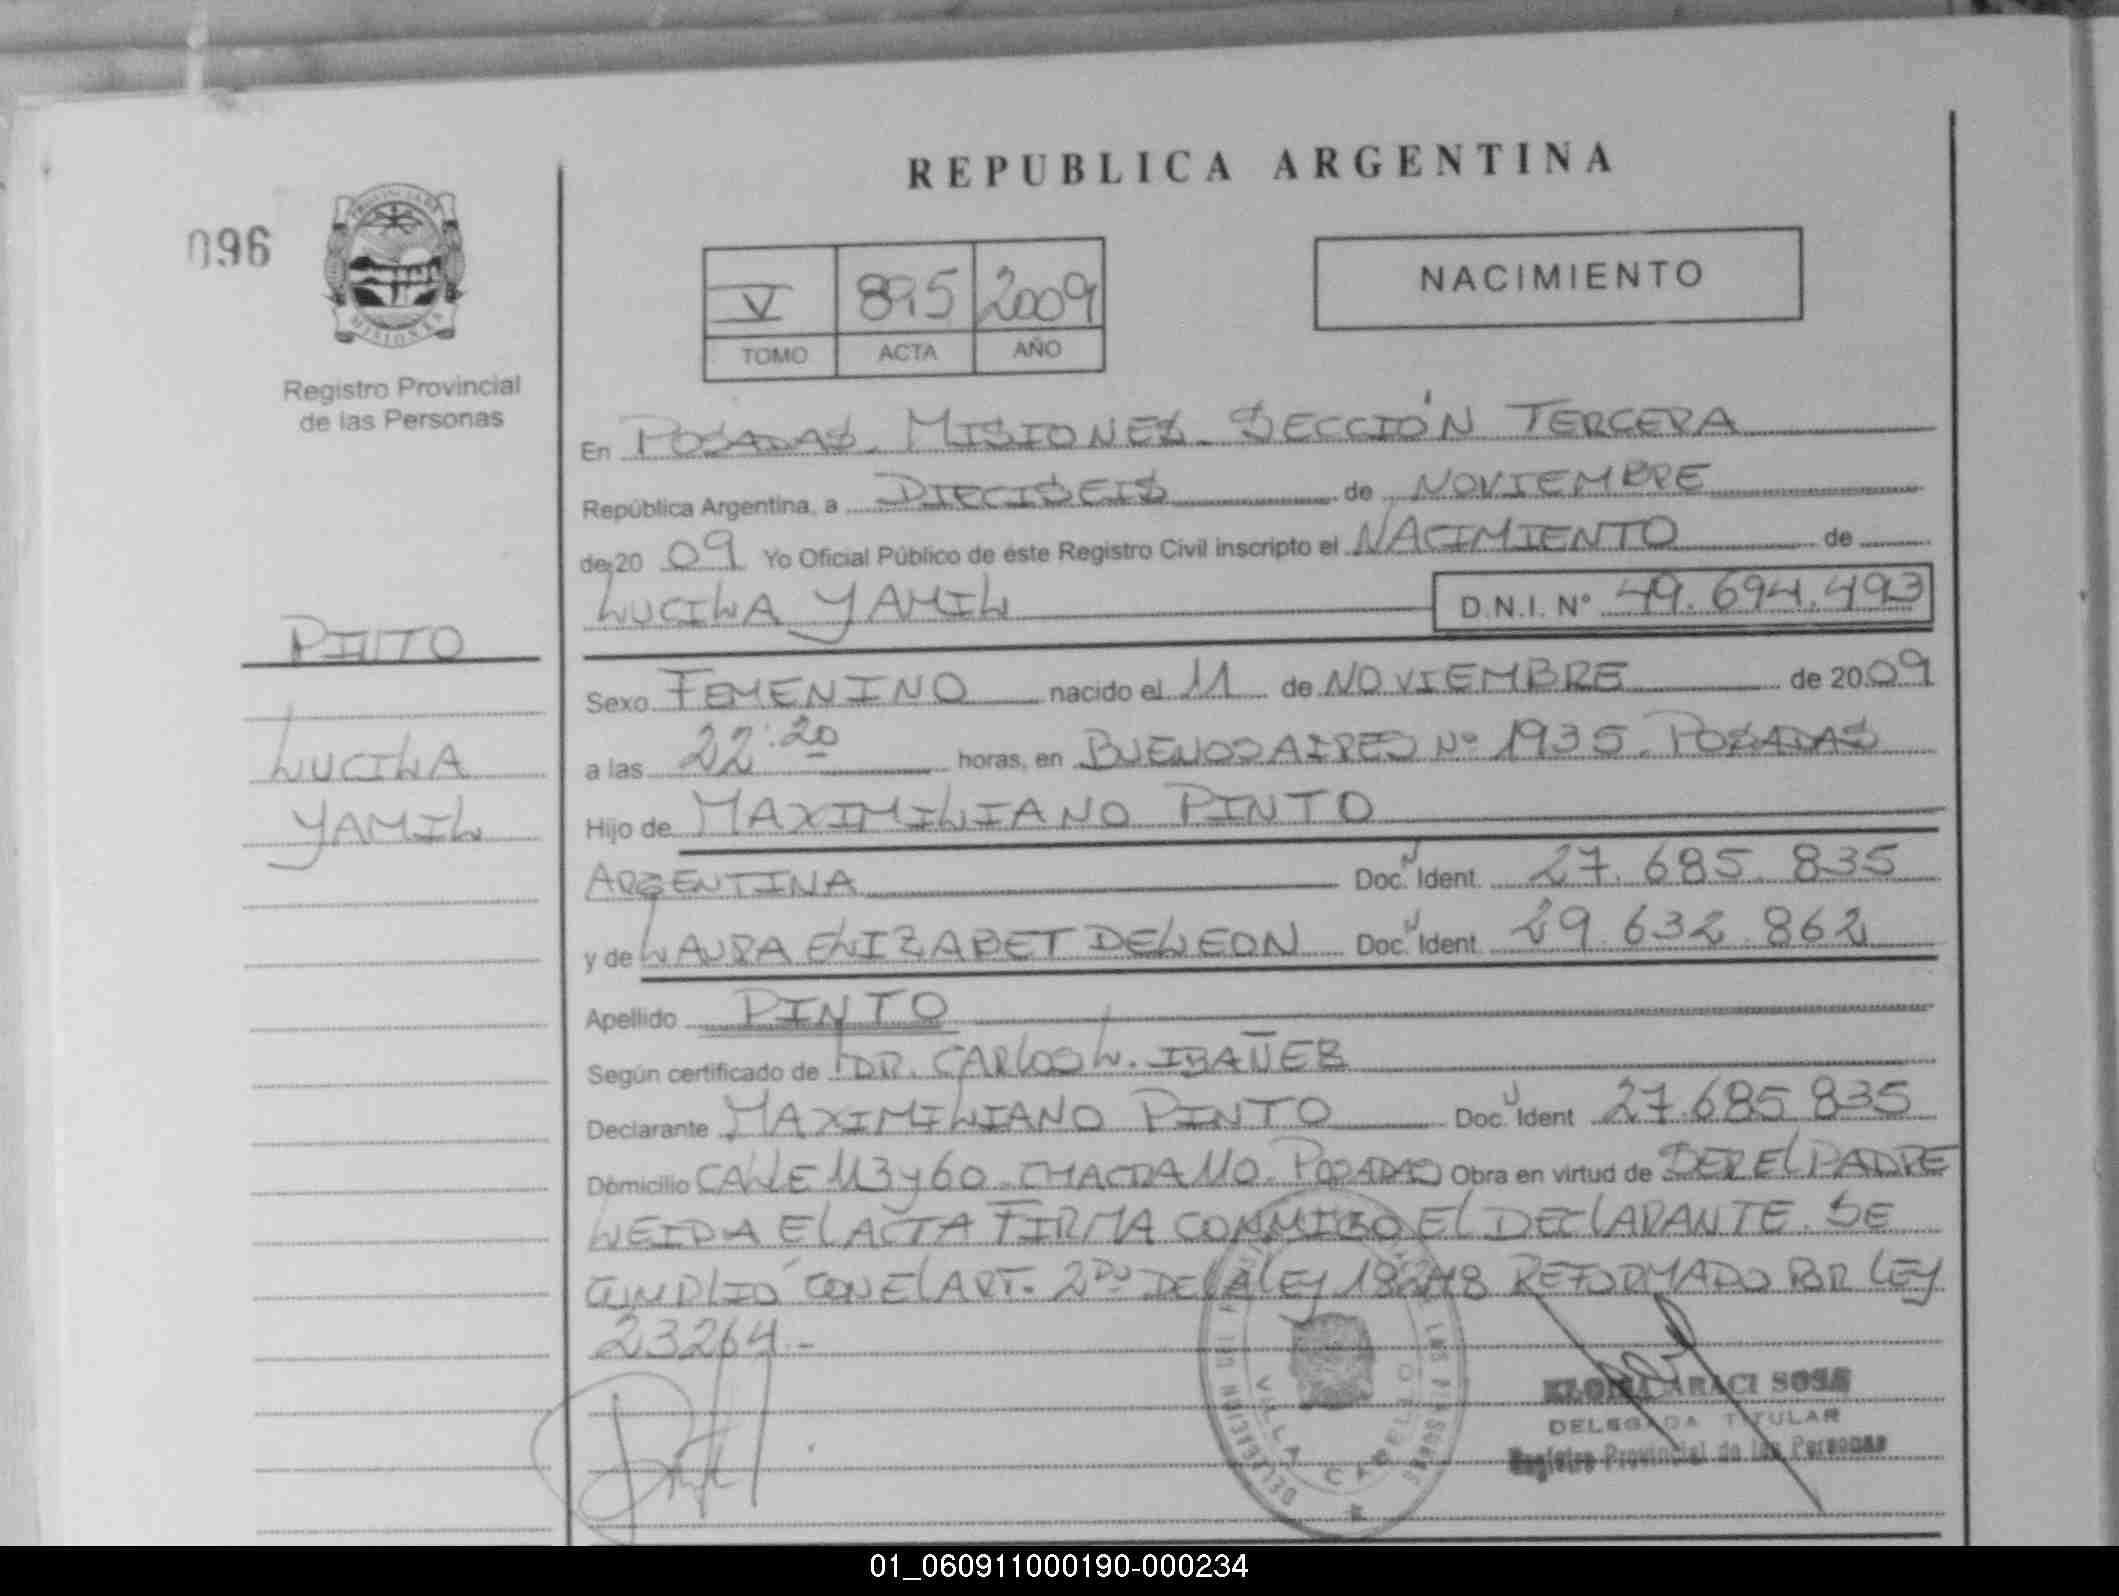 REPUBLICA ARGENTINA
096
PROVINCIA DE
MISIONES
Registro Provincial
de las Personas
NACIMIENTO
V 895 2009
TOMO ACTA AÑO
En POSADAS. MISIONES. SECCIÓN TERCERA
República Argentina, a DIECISEIS de NOVIEMBRE
de 20 09 Yo Oficial Público de éste Registro Civil inscripto el NACIMIENTO de
LUCILA YAMIL D.N.I. Nº 49.694.493
PINTO
LUCILA
YAMIL
Sexo FEMENINO nacido el 11 de NOVIEMBRE de 2009
a las 22:20 horas, en BUENOS AIRES Nº 1935. POSADAS
Hijo de MAXIMILIANO PINTO
ARGENTINA Doc. Ident. 27.685.835
y de LAURA ELIZABET DELEON Doc. Ident. 29.632.862
Apellido PINTO
Según certificado de DR. CARLOS L. IBAÑEZ
Declarante MAXIMILIANO PINTO Doc. Ident 27.685.835
Domicilio CALLE 113 y 60. CHACRA 110. POSADAS Obra en virtud de SER EL PADRE
LEIDA EL ACTA FIRMA CONMIGO EL DECLARANTE. SE
CUMPLIÓ CON EL ART. 2DO DE LA LEY 18248 REFORMADO POR LEY
23264.-
VILLA CABELLO
ARACI SOSA
DELEGADA TITULAR
Registro Provincial de las Personas
01_060911000190-000234